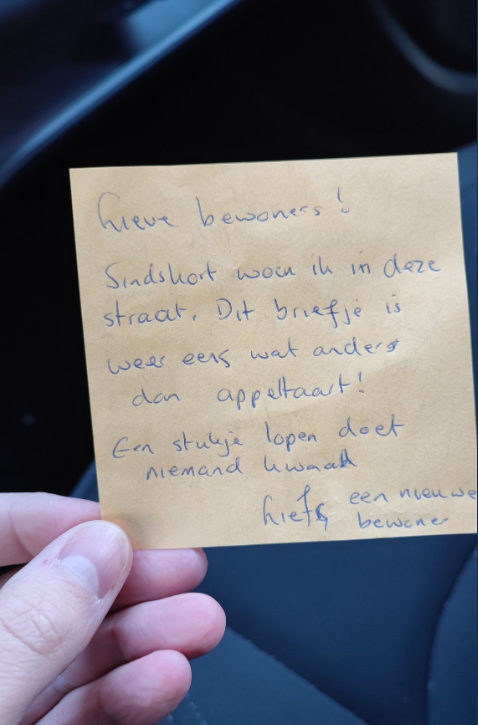 Lieve bewoners!
Sindskort woon ik in deze
straat. Dit briefje is
weer eens wat anders
dan appeltaart!
Een stukje lopen doet
niemand kwaad
Liefs een nieuwe
bewoner